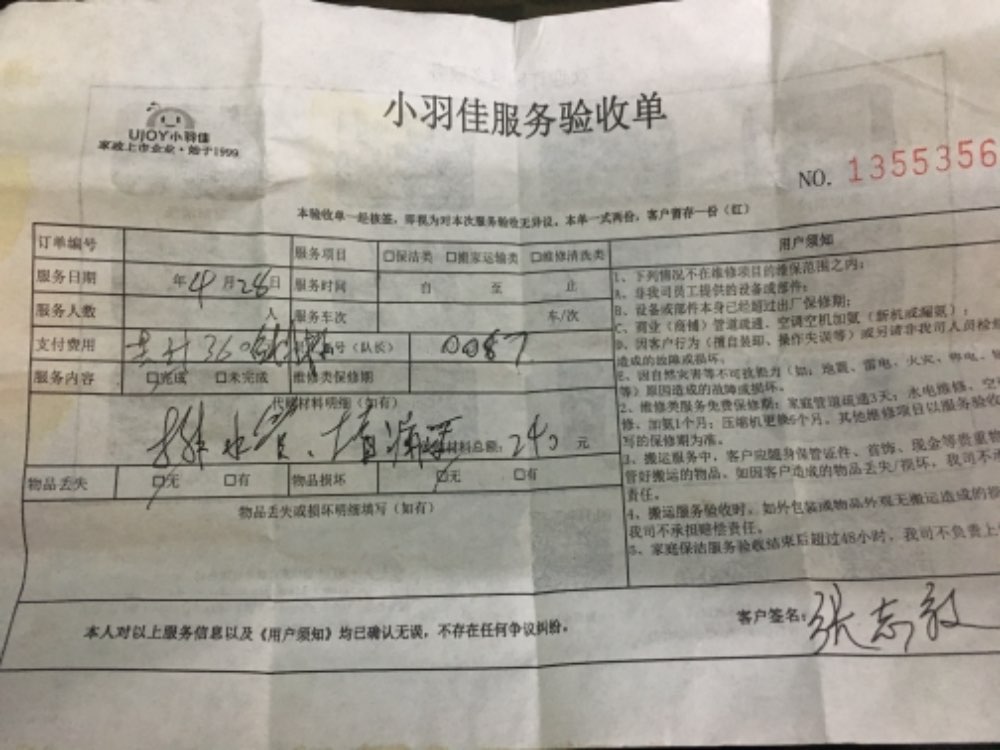 UJOY小羽佳
家政上市企业·始于1999
小羽佳服务验收单
NO. 1355356
本验收单一经核签，即视为对本次服务验收无异议，本单一式两份，客户留存一份（红）
订单编号 服务项目 □保洁类 □搬家运输类 □维修清洗类
服务日期 年4月28日 服务时间 自 至 止
服务人数 人 服务车次 车/次
支付费用 共计360 号（队长） 0087
服务内容 □完成 □未完成 维修类保修期
代购材料明细（如有）
排水管、 材料总额：240元
物品丢失 □无 □有 物品损坏 ☑无 □有
物品丢失或损坏明细填写（如有）
用户须知
1、下列情况不在维修项目的维保范围之内：
A、非我司员工提供的设备或部件；
B、设备或部件本身已经超过出厂保修期；
C、商业（商铺）管道疏通、空调空机加氨（新机或漏氨）；
D、因客户行为（擅自装卸、操作失误等）或另请非我司人员检修
造成的故障或损坏。
E、因自然灾害等不可抗能力（如：地震、雷电、火灾、
等）原因造成的故障或损坏。
2、维修类服务免费保修期：家庭管道疏通3天；水电维修、空
修、加氨1个月；压缩机更换6个月。其他维修项目以服务验收
写的保修期为准。
3、搬运服务中，客户应随身保管证件、首饰、现金等贵重物
管好搬运的物品。如因客户造成的物品丢失/损坏，我司不承
责任。
4、搬运服务验收时，如外包装或物品外观无搬运造成的
我司不承担赔偿责任。
5、家庭保洁服务验收结束后超过48小时，我司不负责上
本人对以上服务信息以及《用户须知》均已确认无误，不存在任何争议纠纷。
客户签名：张志毅